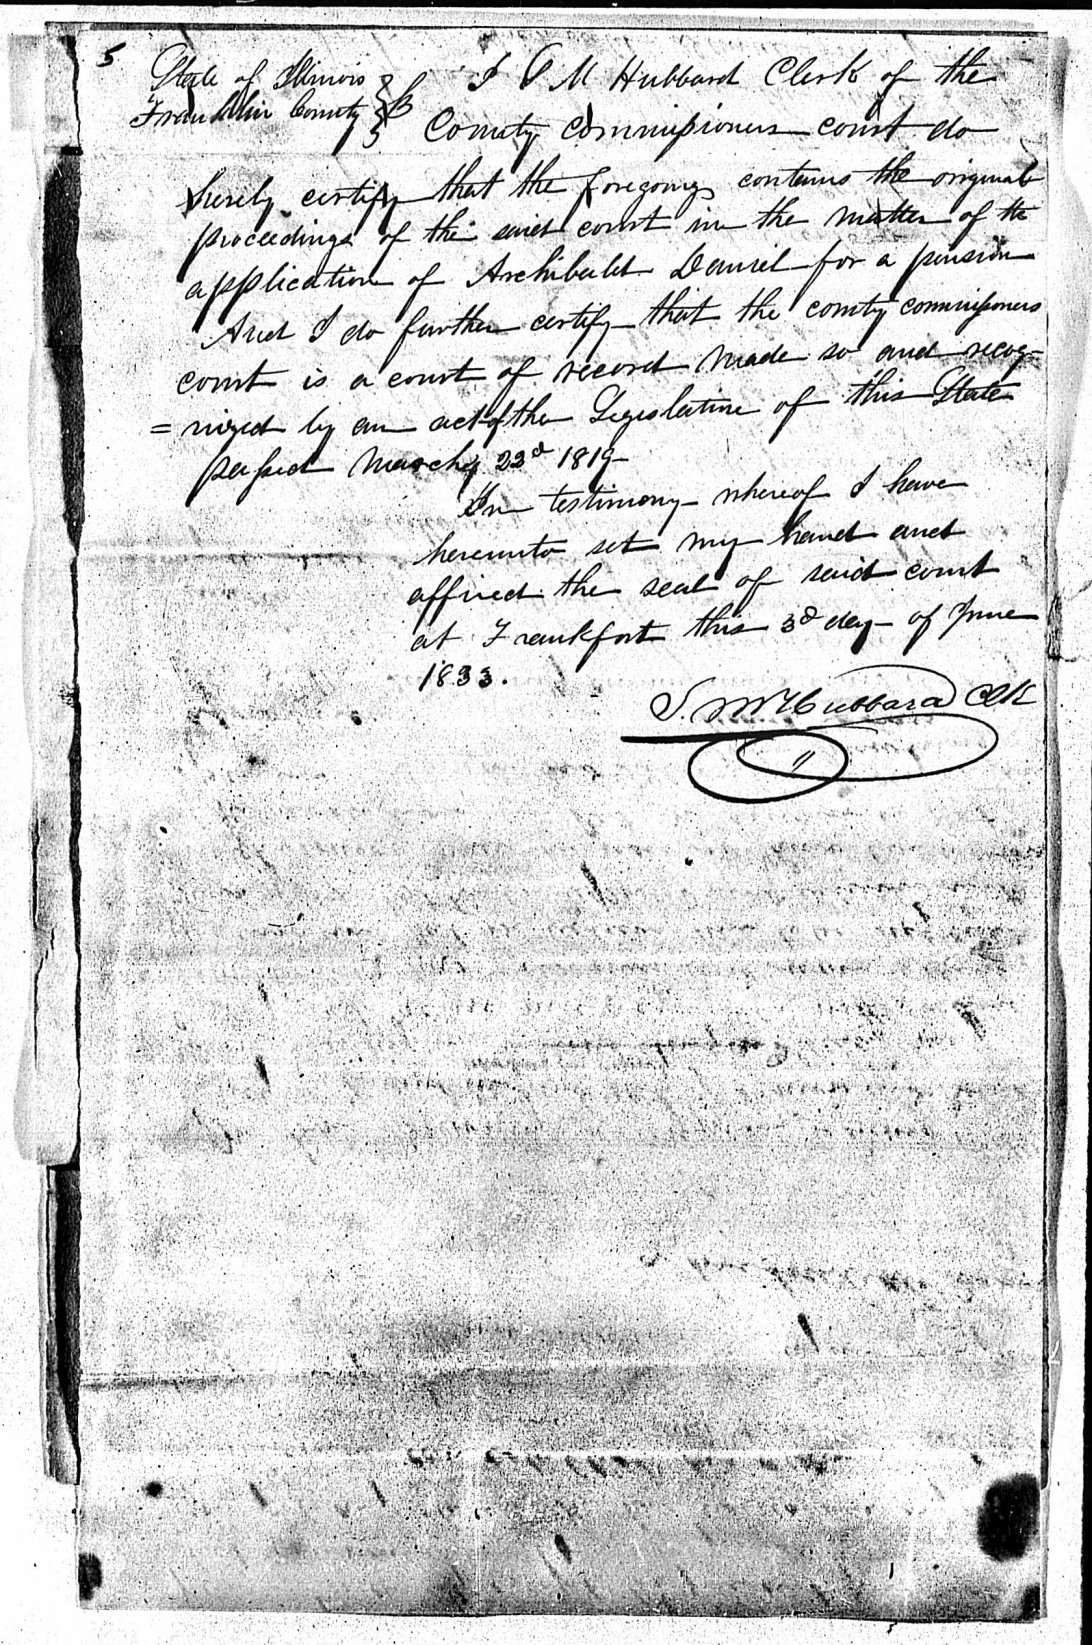 5
State of Illinois
Franklin County } ss
I S M Hubbard Clerk of the
County commissioners court do
hereby certify that the foregoing contains the original
proceedings of the said court in the matter of the
application of Archibald Daniel for a pension
And I do further certify that the county commissioners
court is a court of record made so and recog-
=nized by an act of the Legislature of this State
passed March 23d 1819
In testimony whereof I have
hereunto set my hand and
affixed the seal of said court
at Frankfort this 3d day of June
1833.
S. M Hubbard Clk